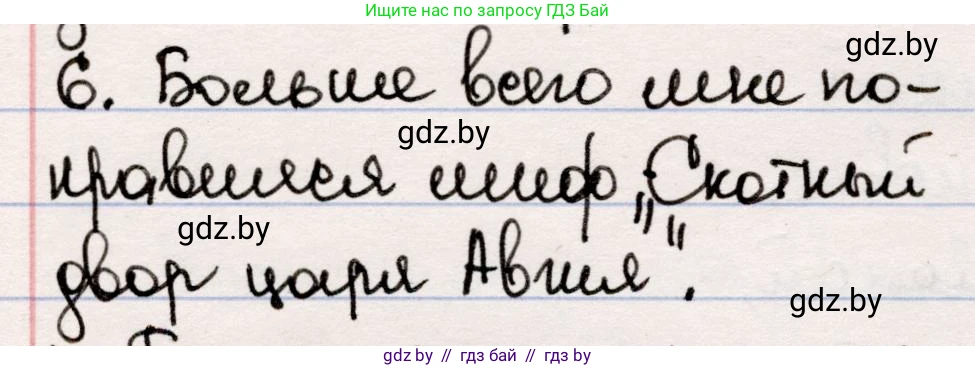 Ищите нас по запросу ГДЗ Бай
gdz.by
6. Больше всего мне по-
gdz.by
нравился миф „Скотный
gdz.by
двор царя Авгия".
gdz.by
gdz.by // гдз бай // гдз by